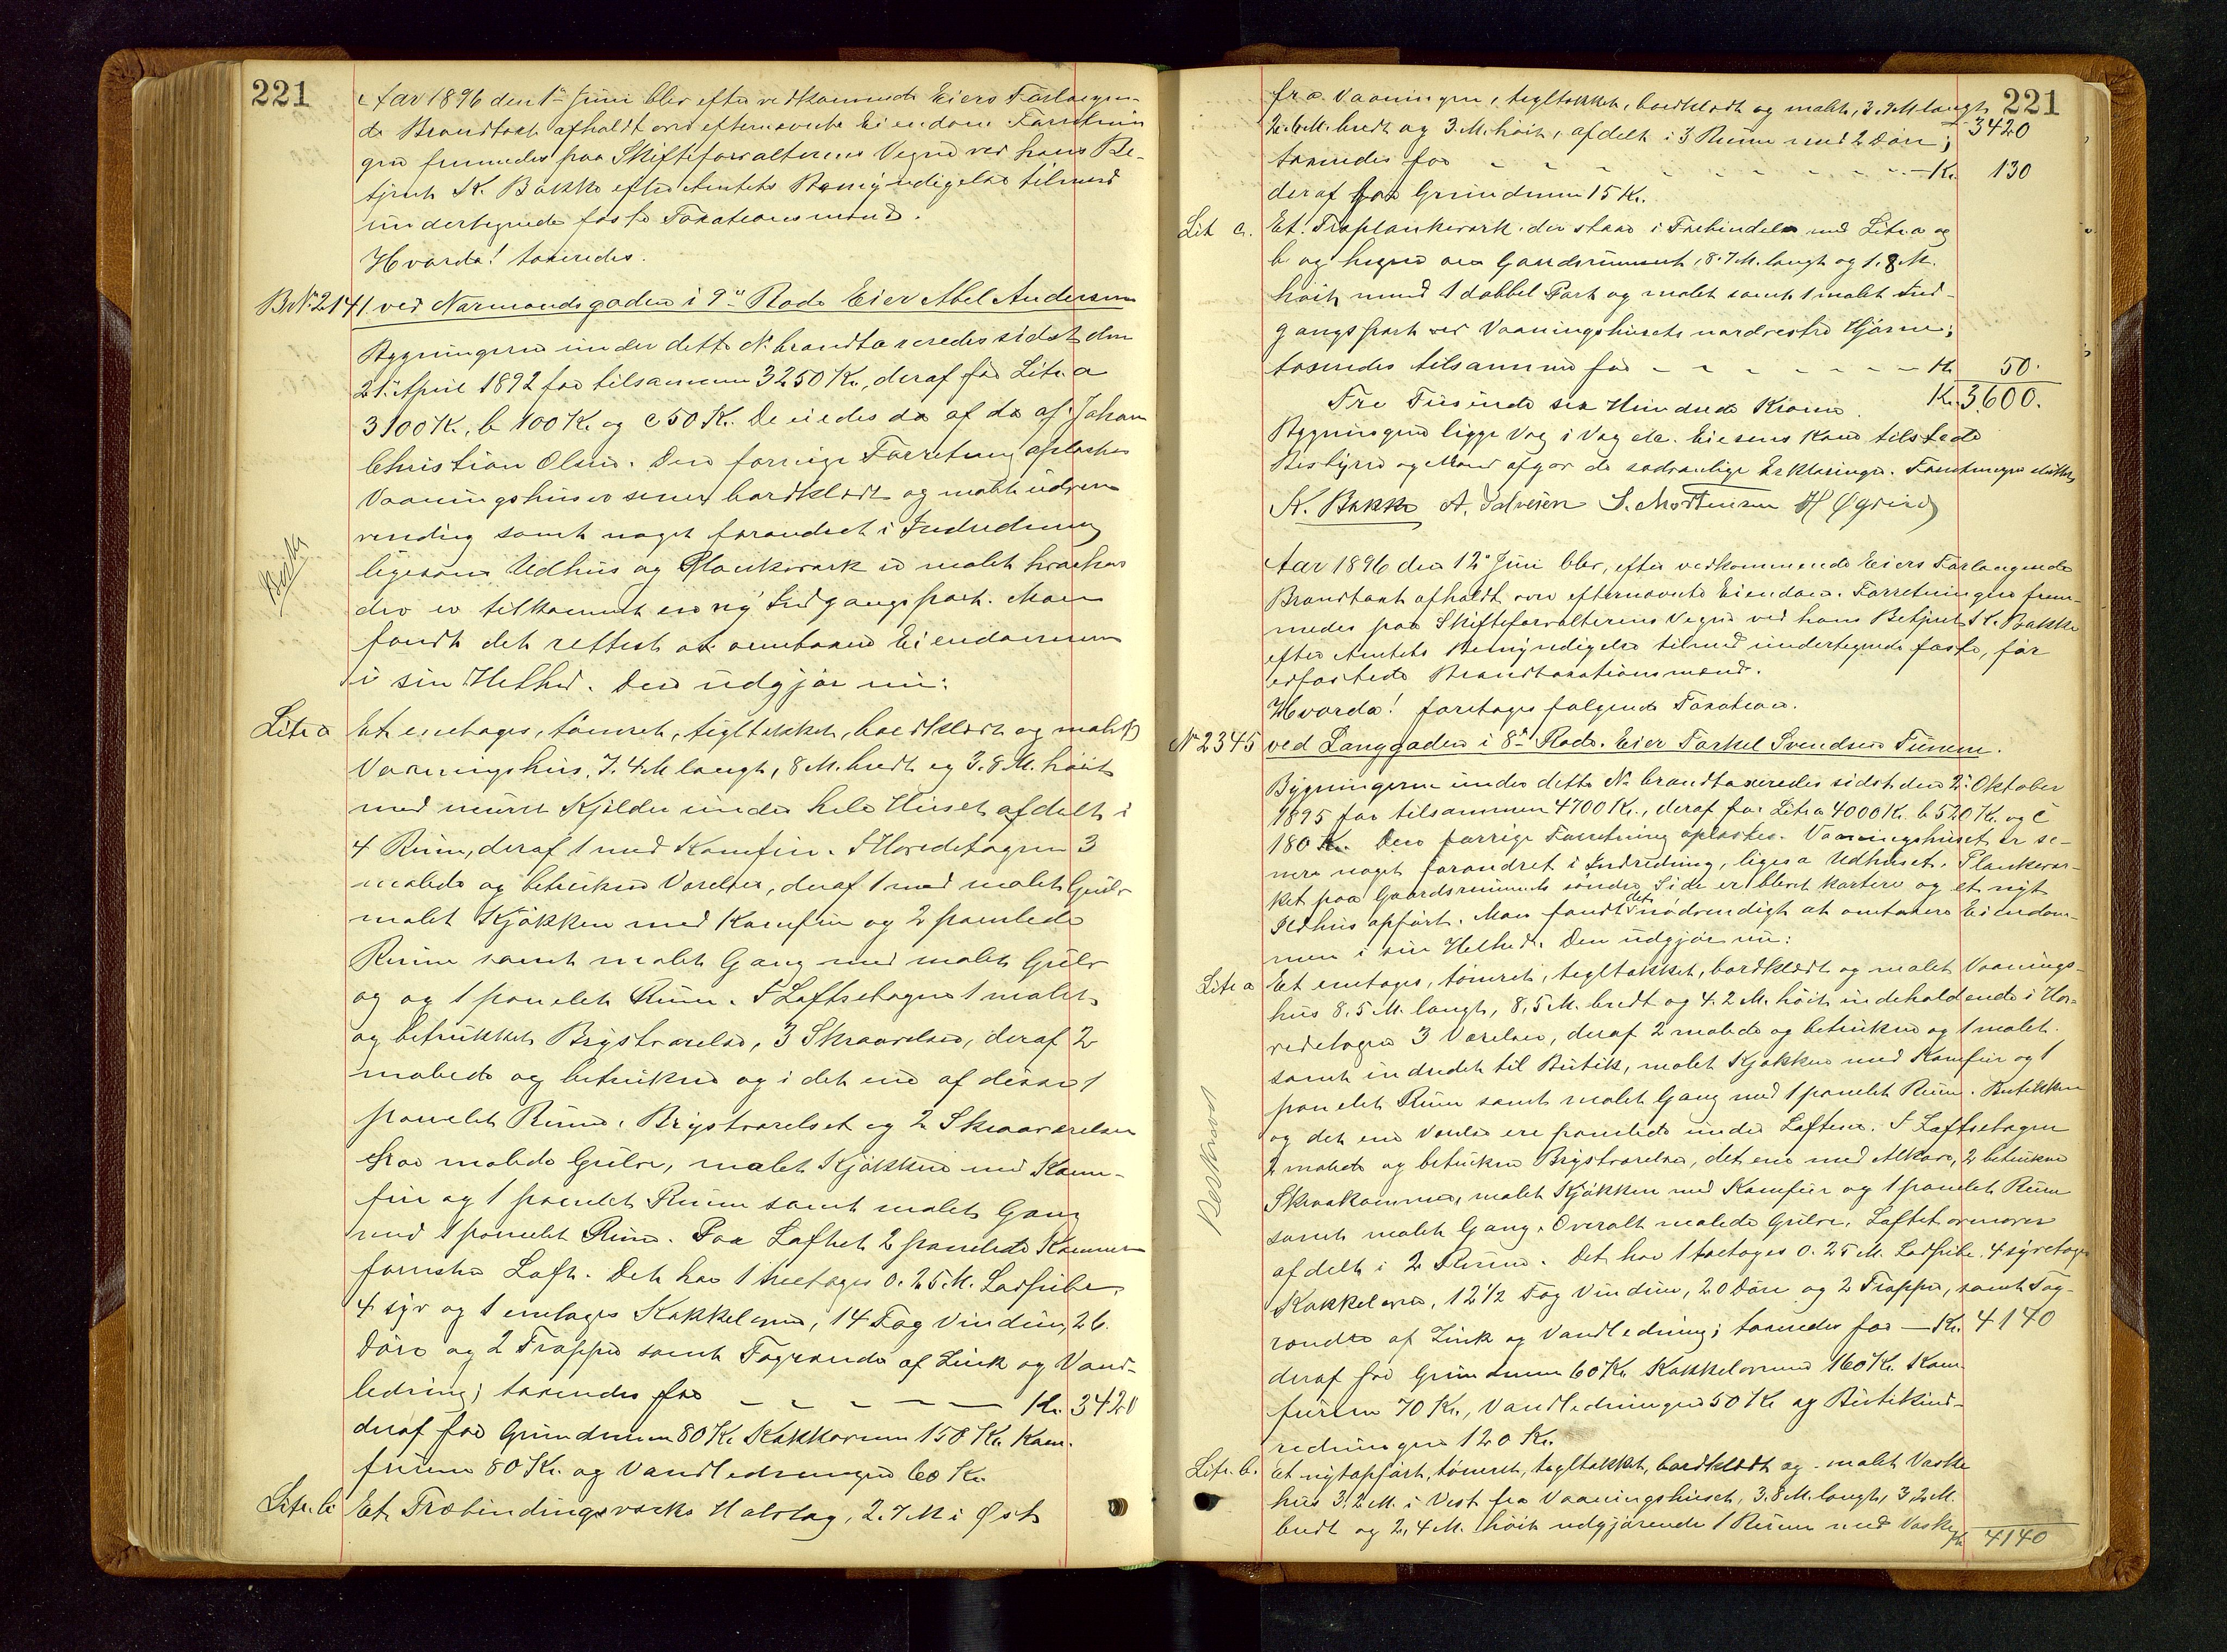 221
Aar 1896 den 1ste Juni blev efter vedkommende Eiers Forlangen-
de Brandtaxt afholdt over efternævnte Eiendom. Forretnin
gen fremmedes paa Skifteforvalterens Vegne ved hans Be-
tjent K. Bakke efter Amtets Bemyndigelse tilmed
undertegnede faste Taxationsmænd.
Hvorda! taxeredes.
BNo 2141 ved Nærmandsgaden i 9de Rode Eier Abel Andersen
Bygningerne under dette No brandtaxeredes sidst den
21. April 1892 for tilsammen 3250 Kr., deraf for Litr a
3100 Kr., b 100 Kr. og c 50 Kr. De eiedes da af da af Johan
Christian Olsen. Den forrige Forretning oplæstes
Vaaningshuset er senere bordklædt og malt udven
vendig samt noget forandret i Indredning
ligesom Udhus og Plankeværk er malet hvorhos
der er tilkommet en ny Indgangsport. Man
fandt det rettest at omtaxere Eiendommen
i sin Helhed. Den udgjør nu:
Litr a Et enetages, tømret, tegltækket, bordklædt og malt
Vaaningshus, 7.4 M langt, 8 M. bredt og 3.8 M. høit
med muret Kjelder under hele Huset afdelt i
4 Rum, deraf 1 med Komfur. I Hovedetagen 3
malede og betrukne Værelser, deraf 1 med malet Gulv
malet Kjøkken med Komfur og 2 panelede
Rum samt malet Gang med malet Gulv
og og 1 panelet Rum. I Loftsetagen 1 malet
og betrukket Brystværelse, 3 Skraaværelser, deraf 2
malede og betrukne og i det ene af disse 1
panelet Rum. Brystværelset og 2 Skraaværelser
har malede Gulve, malet Kjøkken med Kom-
fur og 1 panelet Rum samt malet Gang
med 1 panelet Rum. Paa Loftet 2 panelede Kammer
forneden Loft. Det har 1 treetages 0.25 M. Lodpibe,
4 syv og 1 enetages Kakkelovne, 14 Fag Vinduer, 26
Døre og 2 Trapper samt Tagrender af Zink og Vand-
ledning; taxeredes for - - - - - Kr. 3420
deraf for Grundmuren 80 Kr. Kakkovnene 150 Kr. Kom-
furene 80 Kr. og Vandledningen 60 Kr.
Litr. b Et Træbindingsværks Halvtag, 2.7 M i Øst
221
fra Vaaningen, tegltækket, bordklædt og malt, 3.7 M langt
2.6 M. bredt og 3 M. høit, afdelt i 3 Rum med 2 Døre; 3420
taxeredes for - - - - - - Kr. 130
deraf for Grundmuren 15 Kr.
Lit c. Et Træplankeværk der staar i Forbindelse med Litr a og
b og hegner om Gaardsrummet, 8.7 M. langt og 1.8 M.
høit med 1 dobbel Port og malet samt 1 malet Ind-
gangsport ved Vaaningshusets nordvestre Hjørne;
taxeredes tilsammen for - - - - - - Kr 50.
Tre Tusinde sex Hundrede Kroner. Kr. 3600.
Bygningerne ligge Væg i Væg etc. Eierens Kone tilstede
Bestyrer og Mænd afgav de sædvanlige Erklæringer. Forretningen sluttet
K. Bakke A. Salvesen S. Mortensen
Aar 1896 den 12te Juni blev, efter vedkommende Eiers Forlangende
Brandtaxt afholdt over efternævnte Eiendom. Forretningen frem-
medes paa Skifteforvalterens Vegne ved hans Betjent K. Bakke
efter Amtets Bemyndigelse tilmed undertegnede faste, før
edfæstede Brandtaxationsmænd.
Hvorda! foretoges følgende Taxation.
No 2345 ved Langgaden i 8de Rode. Eier Torkel Svendsen
Bygningerne under dette No brandtaxeredes sidst den 2. Oktober
1895 for tilsammen 4700 Kr., deraf for Litr a 4000 Kr. b 520 Kr. og c
180 Kr. Den forrige Forretning oplæstes. Vaaningshuset er se-
nere noget forandret i Indredning, ligesaa Udhuset. Plankevær-
ket paa Gaardsrummets søndre Side er blevet kortere og et nyt
Ildhus opført. Man fandt det nødvendigt at omtaxere Eiendom-
men i sin Helhed. Den udgjør nu:
Litr a Et enetages, tømret, tegltækket, bordklædt og malet Vaanings-
hus 8.5 M. langt, 8.5 M. bredt og 4.2 M. høit indeholdende i Ho-
vedetagen 3 Værelser, deraf 2 malede og betrukne og 1 malet
samt indredet til Butik, malet Kjøkken med Komfur og 1
panelet Rum samt malet Gang med 1 panelet Rum. Butikken
og det ene Værelse ere panelede under Loftene. I Loftsetagen
2 malede og betrukne Brystværelser, det ene med Alkove, 2 betrukne
Skraakammere, malet Kjøkken med Komfur og 1 panelet Rum
samt malet Gang. Overalt malede Gulve. Loftet ovenover
afdelt i 2 Rum. Det har 1 toetages 0.25 M. Lodpibe, 4 syvetages
Kakkelovne, 12 1/2 Fag Vinduer, 20 Døre og 2 Trapper, samt Tag-
render af Zink og Vandledning; taxeredes for — Kr. 4140
deraf for Grundmuren 60 Kr. Kakkelovnene 160 Kr. Kom-
furene 70 Kr., Vandledningen 50 Kr og Butikind-
redningen 120 Kr.
Litr. b. Et nytopført, tømret, tegltækket, bordklædt og malet Vaske
hus 3.2 M. i Vest fra Vaaningshuset, 3.8 M. langt, 3.2 M.
bredt og 2.4 M. høit udgjørende 1 Rum med Vaske
Kr 4140